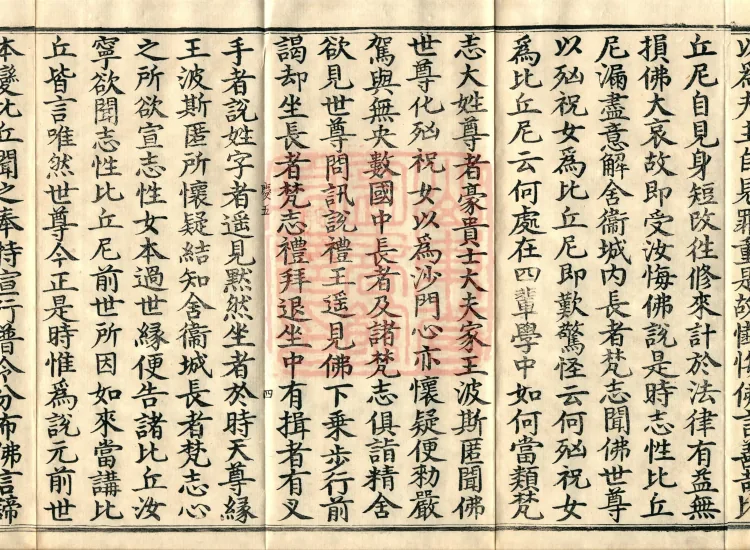 丘尼自見身短改往修來計於法律有益無
損佛大哀故即受汝悔佛說是時志性比丘
尼漏盡意解舍衞城內長者梵志聞佛世尊
以𣧑祝女爲比丘尼即歎驚怪云何𣧑祝女
爲比丘尼云何處在四輩學中如何當類梵
志大姓尊者豪貴士大夫家王波斯匿聞佛
世尊化𣧑祝女以爲沙門心亦懷疑便勑嚴
駕與無央數國中長者及諸梵志俱詣精舍
欲見世尊問訊說禮王遥見佛下乗步行前
謁却坐長者梵志禮拜退坐中有揖者有叉
四
手者說姓字者遥見黙然坐者於時天尊緣
王波斯匿所懷疑結知舍衞城長者梵志心
之所欲宣志性女本過世緣便告諸比丘汝
寧欲聞志性比丘尼前世所因如來當講比
丘皆言唯然世尊今正是時惟爲說元前世
本變比丘聞之奉持宣行普令分布佛言諦